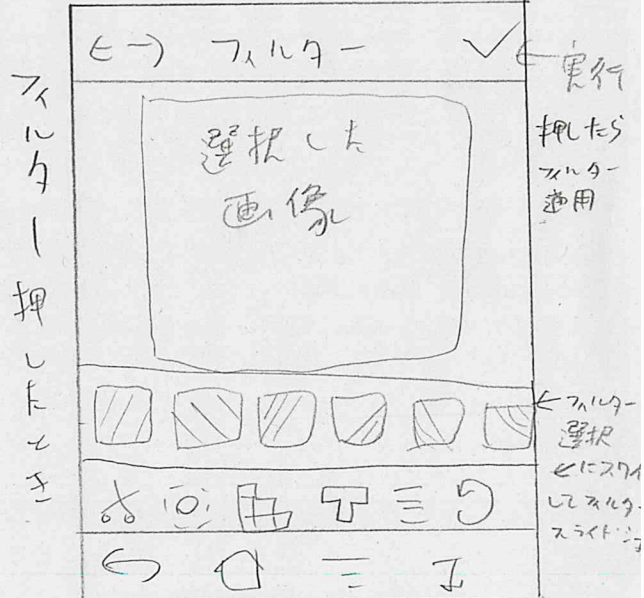 フィルター押したとき
←→ フィルター ✓
← 実行
押したら
フィルター
適用
選択した
画像
T
← フィルター
選択
して フィルター
スライド